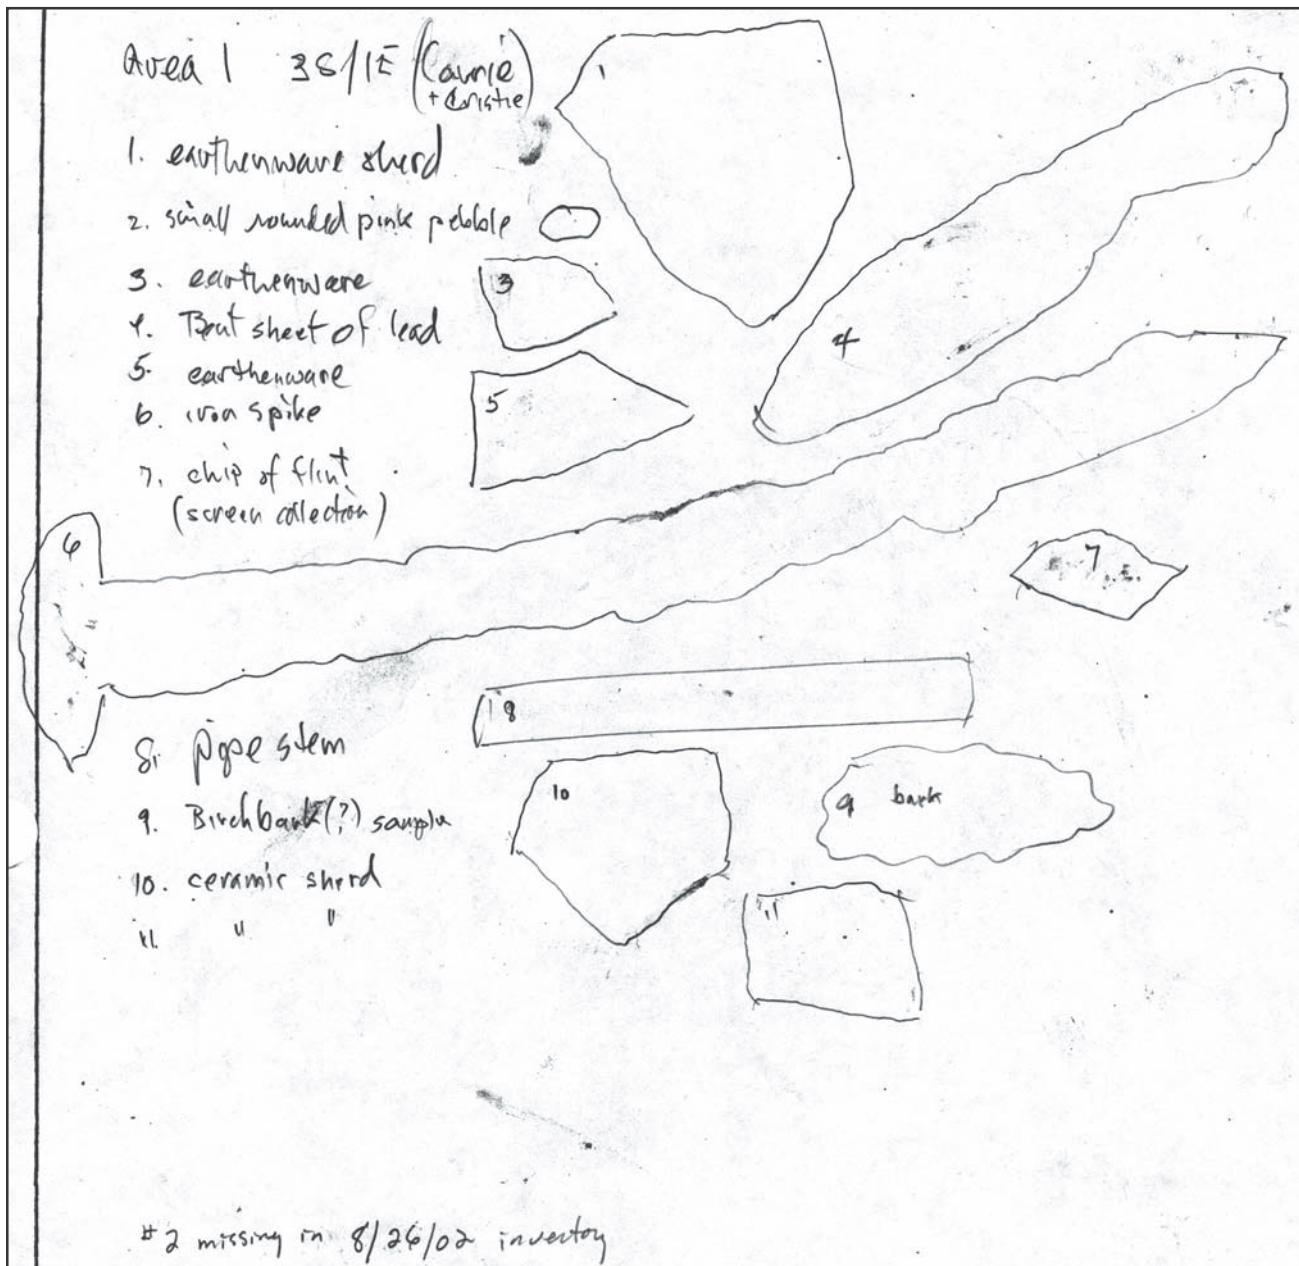 Area 1 3S/1E (Laurie
+ Cristie)
1. earthenware sherd
2. small rounded pink pebble
3. earthenware
4. Bent sheet of lead
5. earthenware
6. iron spike
7. chip of flint
(screen collection)
8. pipe stem
9. Birchbark(?) sample
10. ceramic sherd
11. " "
1
3
4
5
6
7
8
10
9 bark
11
#2 missing in 8/26/02 inventory